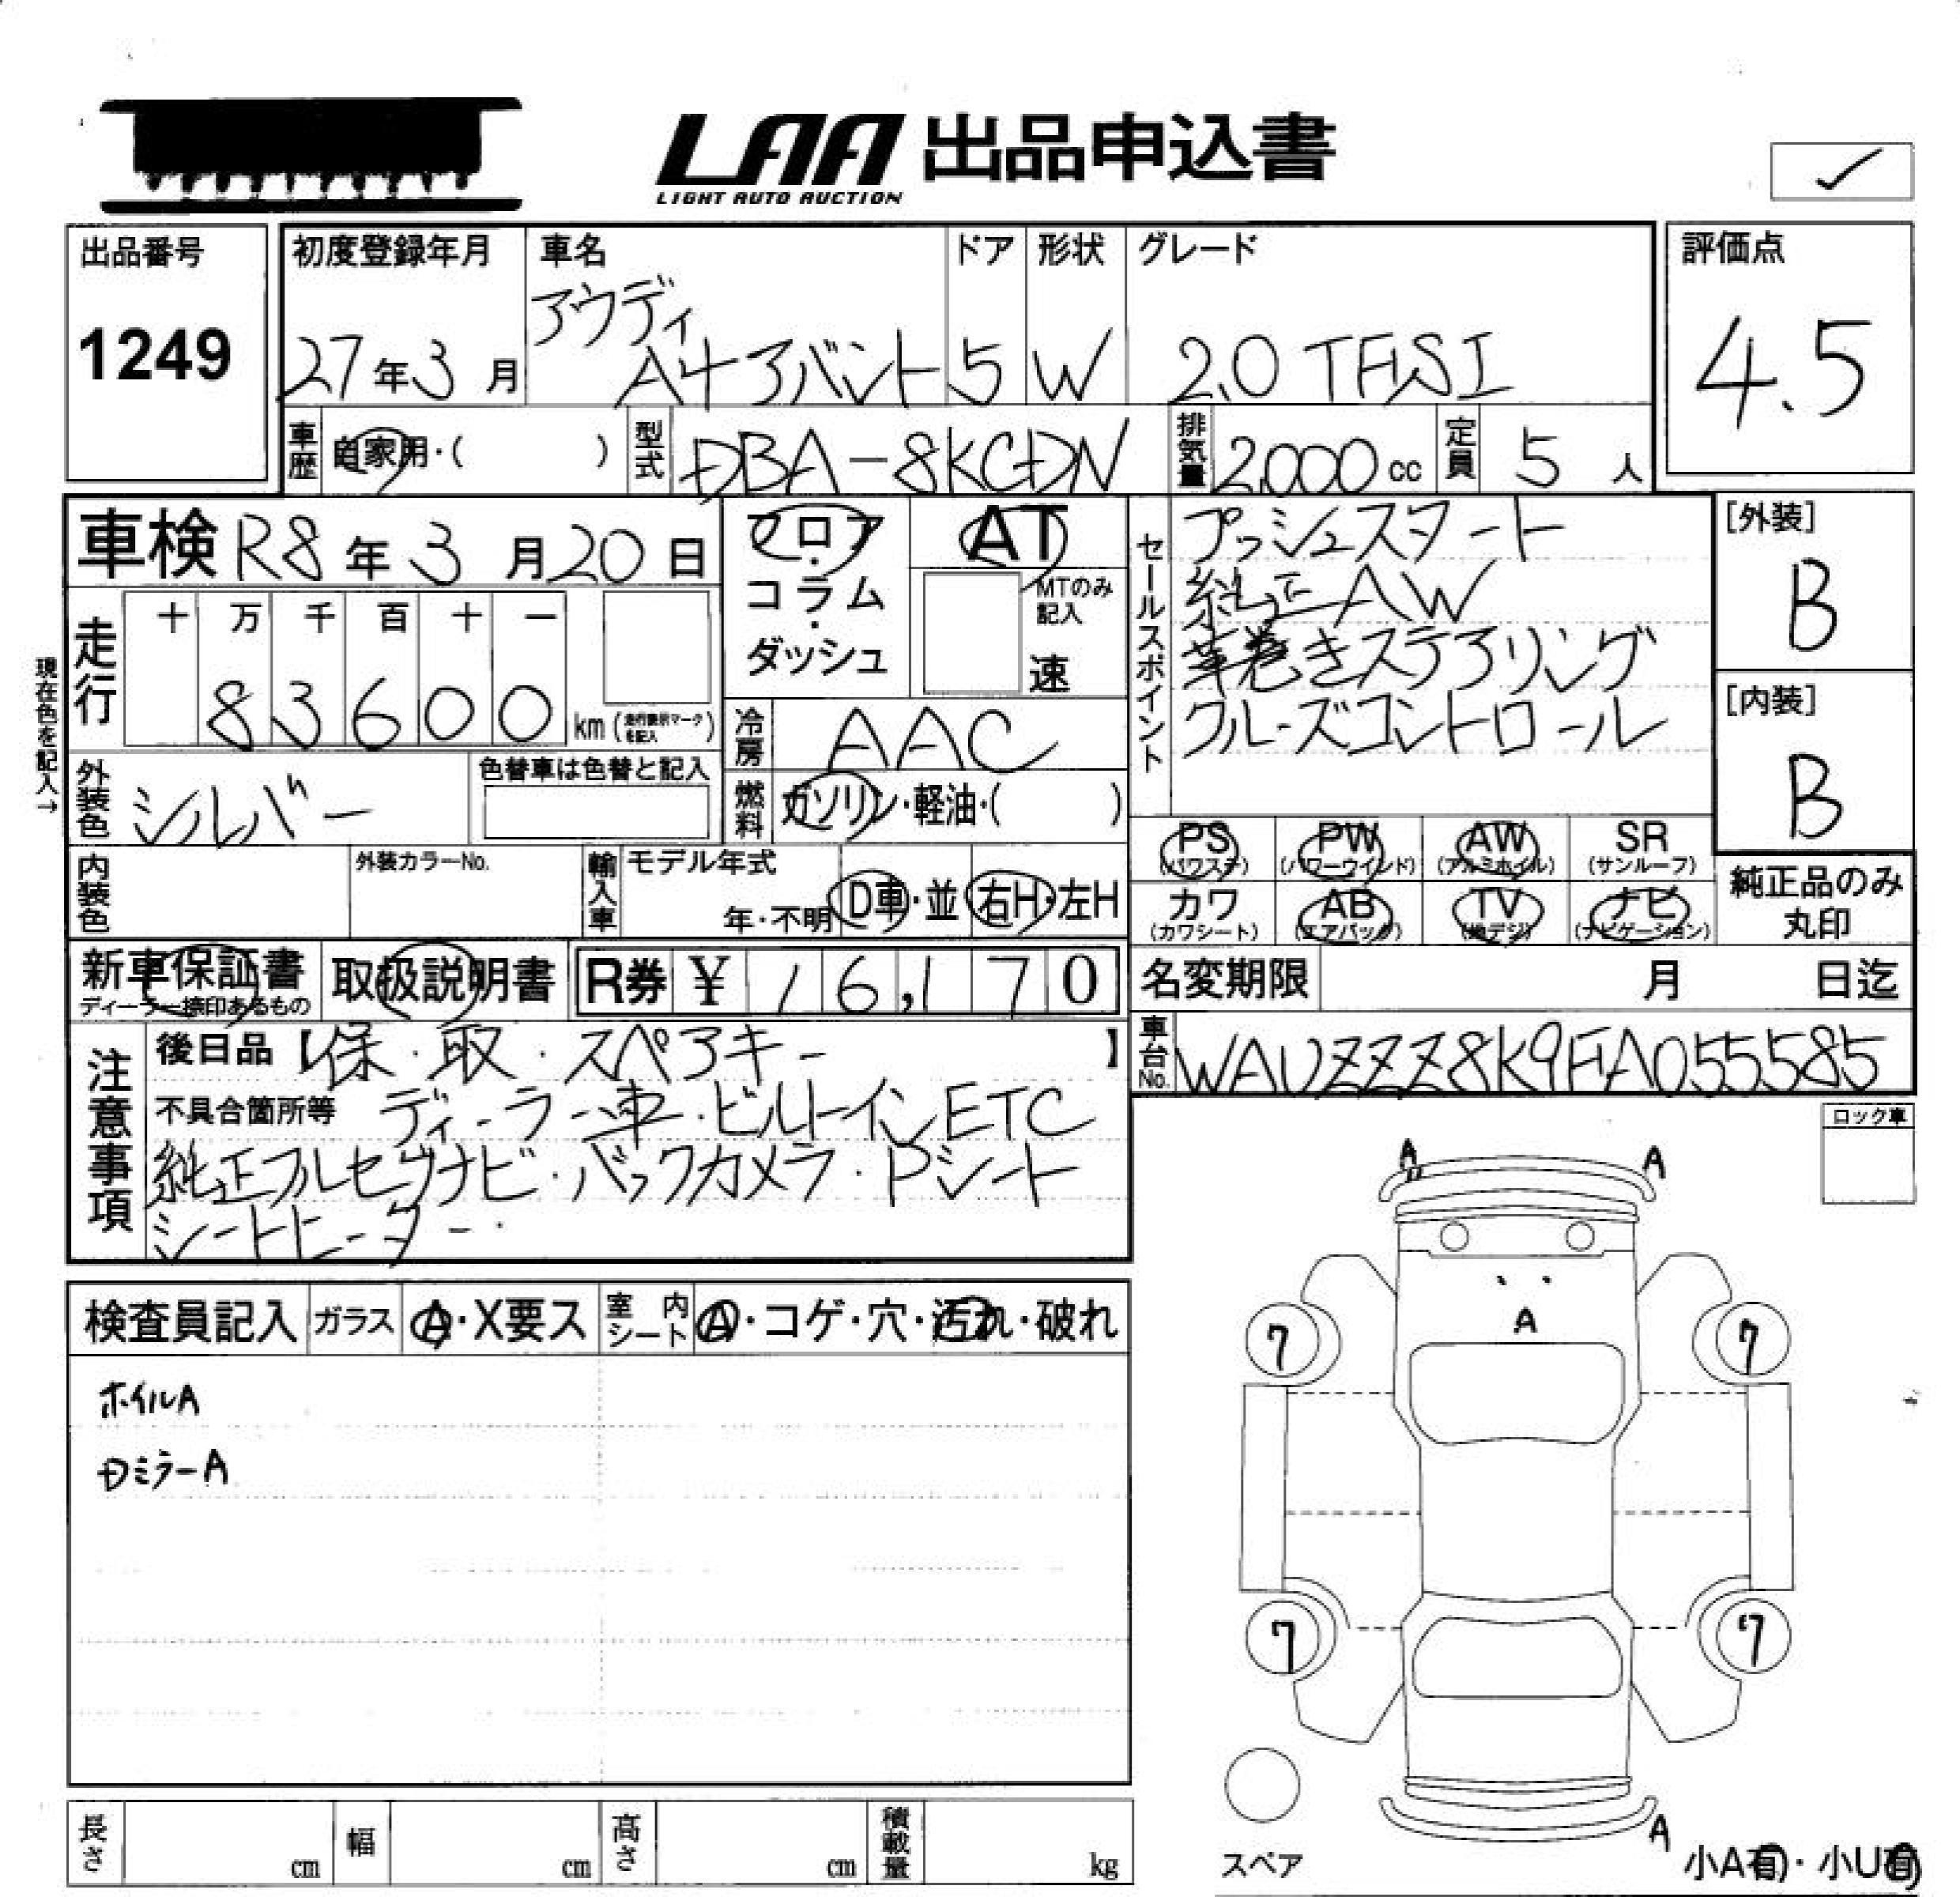 LAA 出品申込書
LIGHT AUTO AUCTION
出品番号
1249
初度登録年月
27年3月
車名
アウディ
A4アバント
ドア
5
形状
W
グレード
2.0 TFSI
評価点
4.5
車歴
自家用・( )
型式
DBA-8KCDN
排気量
2,000cc
定員
5人
車検 R8年3月20日
フロア・コラム・ダッシュ
AT
MTのみ記入
速
セールスポイント
プッシュスタート
純正AW
革巻きステアリング
クルーズコントロール
[外装]
B
[内装]
B
現在色を記入→
走行
十 万 千 百 十 一
8 3 6 0 0 km (走行表示マークを記入)
冷房
AAC
外装色
シルバー
色替車は色替と記入
燃料
ガソリン・軽油・( )
PS (パワステ)
PW (パワーウインド)
AW (アルミホイル)
SR (サンルーフ)
カワ (カワシート)
AB (エアバッグ)
TV (地デジ)
ナビ (ナビゲーション)
純正品のみ丸印
内装色
外装カラーNo.
輸入車
モデル年式
年・不明
D車・並
右H・左H
新車保証書
ディーラー捺印あるもの
取扱説明書
R券 ¥ 16,170
名変期限 月 日迄
車台No.
WAUZZZ8K9FA055585
注意事項
後日品【保・取・スペアキー】
不具合箇所等 ディーラー車・ビルトインETC
純正フルセグナビ・バックカメラ・Pシート
シートヒーター・
ロック車
検査員記入
ガラス
A・X要ス
室内シート
A・コゲ・穴・汚れ・破れ
ホイルA
Dミラー A
A
A
A
7
7
7
7
A
スペア
小A有・小U有
長さ cm
幅 cm
高さ cm
積載量 kg